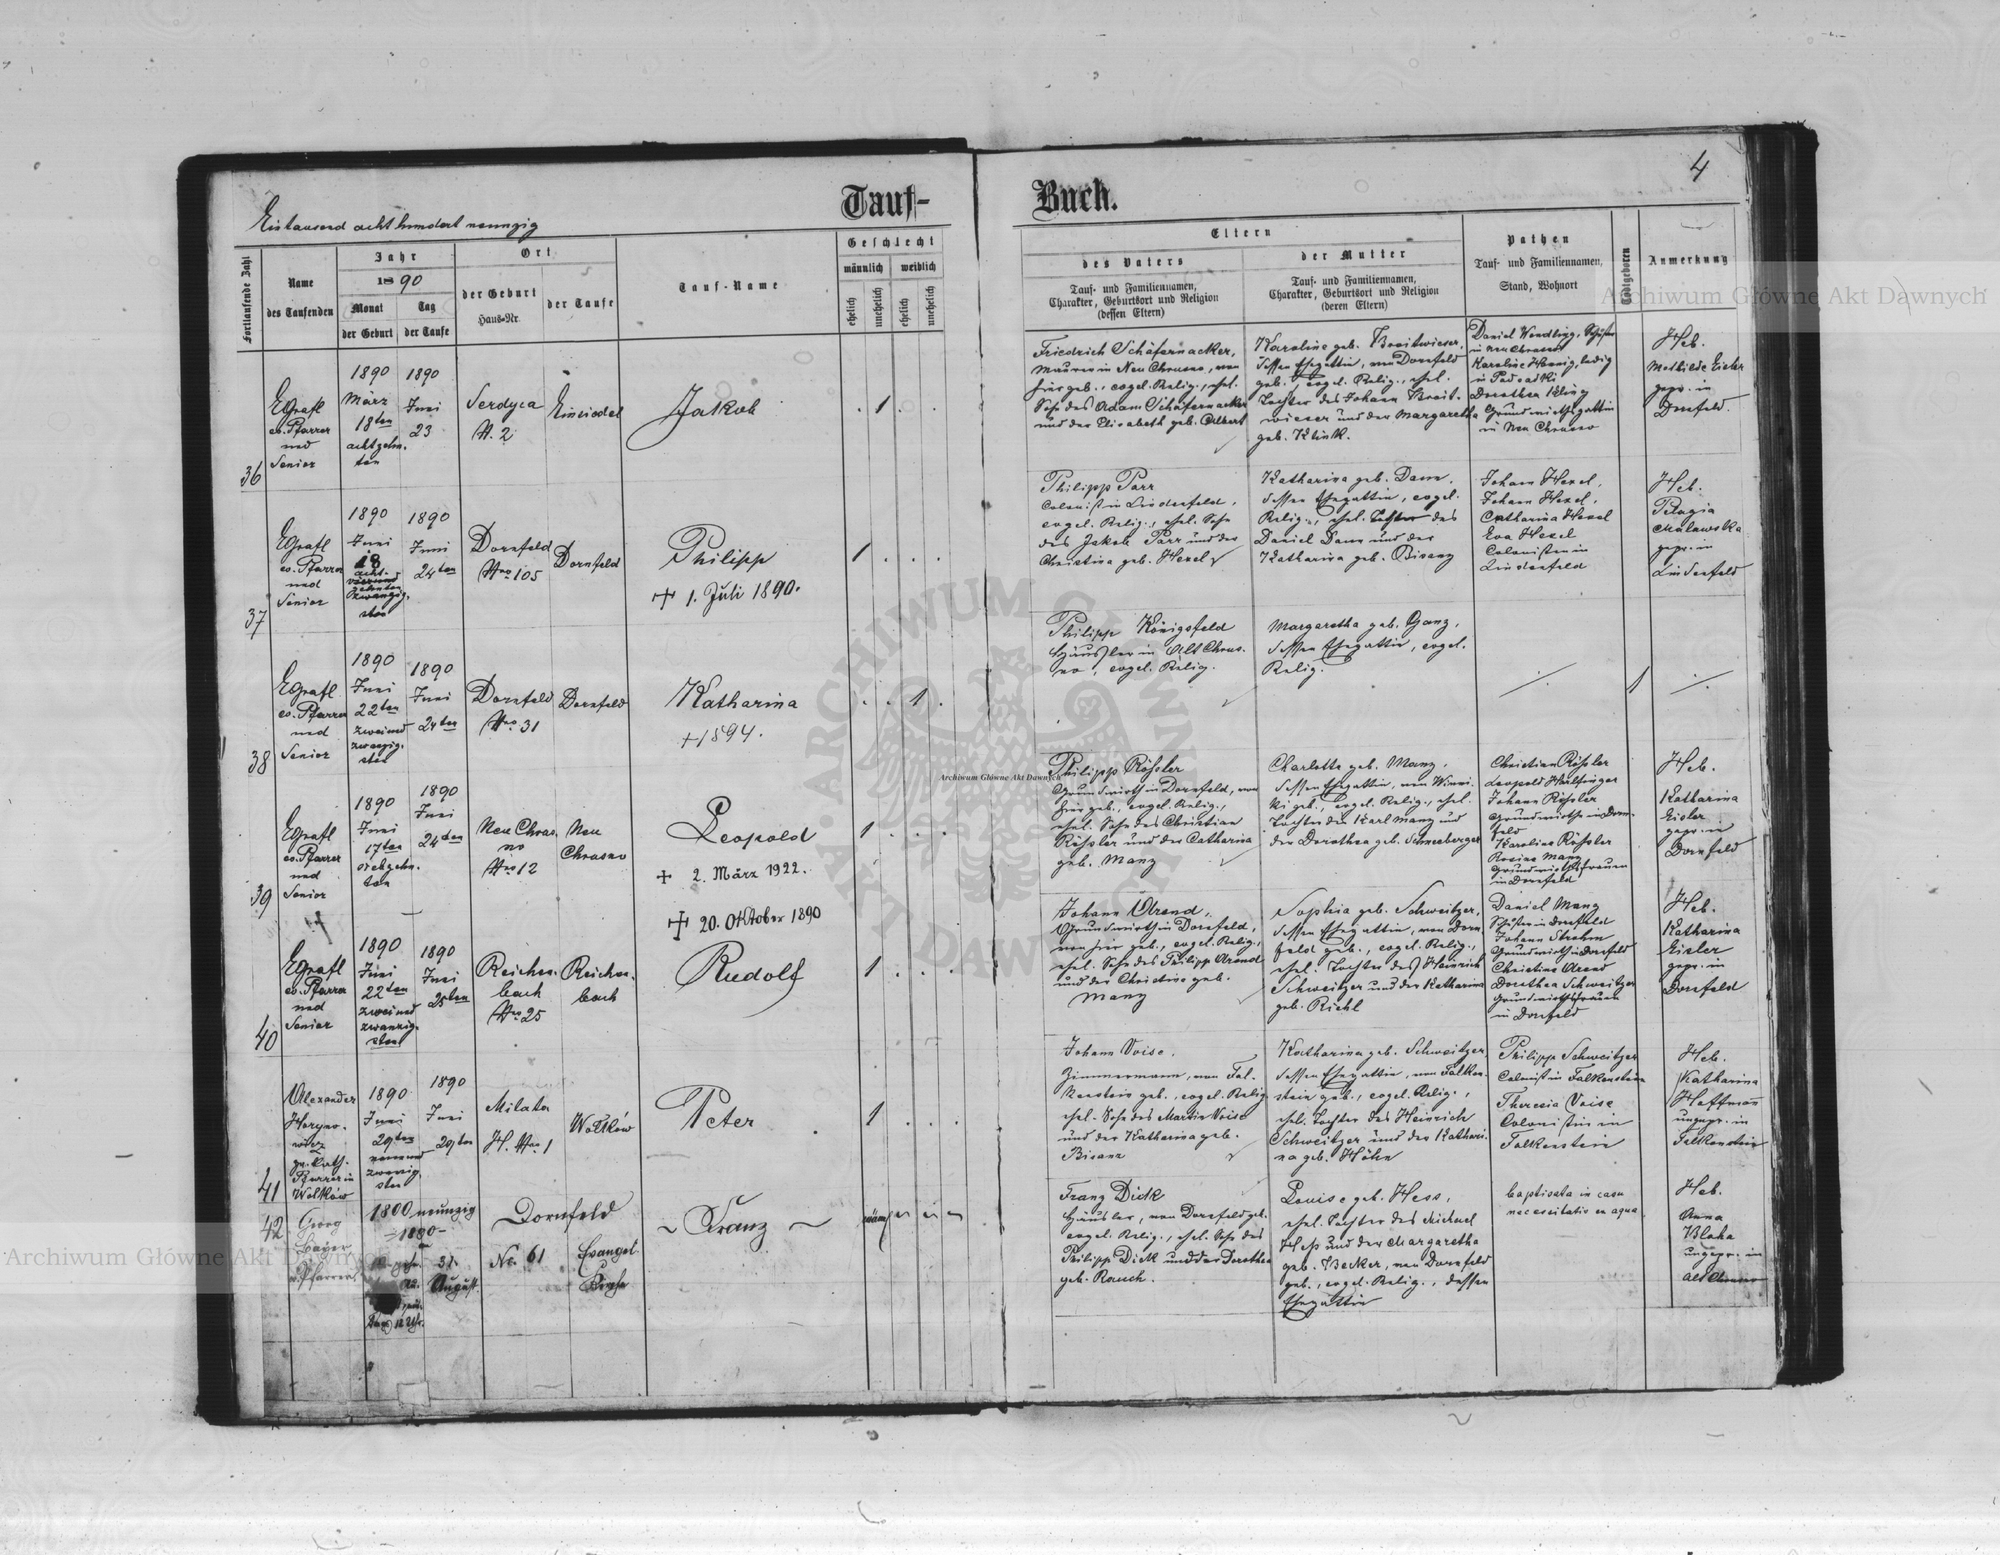 4
Tauf-
Buch.
Eintausend acht hundert neunzig
Fortlaufende Zahl
Name
des Taufenden
Jahr
1890
Monat
der Geburt
Tag
der Taufe
Ort
der Geburt
Haus-Nr.
der Taufe
Tauf-Name
Geschlecht
männlich
weiblich
ehelich
unehelich
ehelich
unehelich
Eltern
des Vaters
Tauf- und Familiennamen,
Charakter, Geburtsort und Religion
(dessen Eltern)
der Mutter
Tauf- und Familiennamen,
Charakter, Geburtsort und Religion
(deren Eltern)
Pathen
Tauf- und Familiennamen,
Stand, Wohnort
Todtgeboren
Anmerkung
36
Egrafl
ev. Pfarrer
und
Senior
1890
März
18ten
achtzehn-
ten
1890
Juni
23
Serdyca
N. 2
Einsiedel
Jakob
1
Friedrich Schäfernacker,
Maurer in Neu Chrusno, von
hier geb., evgel. Relig., ehel.
Sohn des Adam Schäfernacker
und der Elisabeth geb. Albert
Karoline geb. Breitwieser,
dessen Ehegattin, von Dornfeld
geb., evgel. Relig., ehel.
Tochter des Johann Breit-
wieser und der Margaretha
geb. Klink.
Daniel Wendling, Schuster
in Neu Chrusno
Karoline Hennig, ledig
in Podsadki
Dorothea Kling
Grundwirthsgattin
in Neu Chrusno
Heb.
Mathilde Eisler
gepr. in
Dornfeld.
37
Egrafl
ev. Pfarrer
und
Senior
1890
Juni
18
acht-
zehnten
1890
Juni
24ten
Dornfeld
Nro 105
Dornfeld
Philipp
+ 1. Juli 1890.
1
Philipp Parr
Colonist in Lindenfeld,
evgel. Relig., ehel. Sohn
des Jakob Parr und der
Christina geb. Hexel
Katharina geb. Daum,
dessen Ehegattin, evgel.
Relig., ehel. Tochter des
Daniel Daum und der
Katharina geb. Bisanz
Johann Hexel,
Johann Hexel,
Catharina Hexel
Eva Hexel
Colonisten in
Lindenfeld
Heb.
Pelagia
Malawska
gepr. in
Lindenfeld
38
Egrafl
ev. Pfarrer
und
Senior
1890
Juni
22ten
zweiund
zwanzig-
sten
1890
Juni
24ten
Dornfeld
Nro. 31
Dornfeld
Katharina
+ 1894.
1
Philipp Königsfeld
Häusler in Alt Chrus-
no, evgel. Relig.
Margaretha geb. Ganz,
dessen Ehegattin, evgel.
Relig.
1
39
Egrafl
ev. Pfarrer
und
Senior
1890
Juni
17ten
siebzehn-
ten
1890
Juni
24ten
Neu Chrus-
no
Nro 12
Neu
Chrusno
Leopold
+ 2. März 1922.
1
Philipp Rößler
Grundwirth in Dornfeld, von
hier geb., evgel. Relig.,
ehel. Sohn des Christian
Rößler und der Catharina
geb. Manz
Charlotte geb. Manz,
dessen Ehegattin, von Winni-
ki geb., evgel. Relig., ehel.
Tochter des Karl Manz und
der Dorothea geb. Schneeberger
Christian Rößler
Johann Rößler
Grundwirthe in Dorn-
feld
Karoline Rößler
Rosina Manz
Grundwirthsfrauen
in Dornfeld
Heb.
Katharina
Eisler
gepr. in
Dornfeld
40
Egrafl
ev. Pfarrer
und
Senior
1890
Juni
22ten
zweiund
zwanzig-
sten
1890
Juni
25ten
Reichen-
bach
Nro 25
Reichen-
bach
+ 20. Oktober 1890
Rudolf
1
Johann Arend,
Grundwirth in Dornfeld,
von hier geb., evgel. Relig.,
ehel. Sohn des Philipp Arend
und der Christine geb.
Manz
Sophia geb. Schweitzer,
dessen Ehegattin, von Dorn-
feld geb., evgel. Relig.,
ehel. Tochter des Heinrich
Schweitzer und der Katharina
geb. Riehl
Daniel Manz
Schuster in Dornfeld
Johann Strohm
Grundwirth in Dornfeld
Christine Arend
Dorothea Schweitzer
Grundwirthsfrauen
in Dornfeld
Heb.
Katharina
Eisler
gepr. in
Dornfeld
41
Alexander
gr. kath.
Pfarrer in
Wolków
1890
Juni
29ten
neunund
zwanzig-
sten
1890
Juni
29ten
Milata
H. Nro 1
Wolków
Peter
1
Johann Voise,
Zimmermann, von Fal-
kenstein geb., evgel. Relig.
ehel. Sohn des Martin Voise
und der Katharina geb.
Bisanz
Katharina geb. Schweitzer,
dessen Ehegattin, von Falken-
stein geb., evgel. Relig.,
ehel. Tochter des Heinrich
Schweitzer und der Kathari-
na geb. Höhn
Philipp Schweitzer
Colonist in Falkenstein
Theresia Voise
Colonistin in
Falkenstein
Heb.
Katharina
Hoffmann
ungepr. in
Falkenstein
42
Georg
Bayer
Pfarrer
1800 neunzig
1890
31.
August.
Dornfeld
No. 61
Evangel.
Kirche
Franz
Franz Dick
Häusler, von Dornfeld geb.
evgel. Relig., ehel. Sohn des
Philipp Dick und der Dorothea
geb. Rauch.
Louise geb. Hess,
ehel. Tochter des Michael
Heß und der Margaretha
geb. Becker, von Dornfeld
geb., evgel. Relig., dessen
Ehegattin
baptisata in casu
necessitatis ex aqua
Heb.
Anna
Blaha
ungepr. in
Alt Chrusno
Archiwum Główne Akt Dawnych
Archiwum Główne Akt Dawnych
Archiwum Główne Akt Dawnych